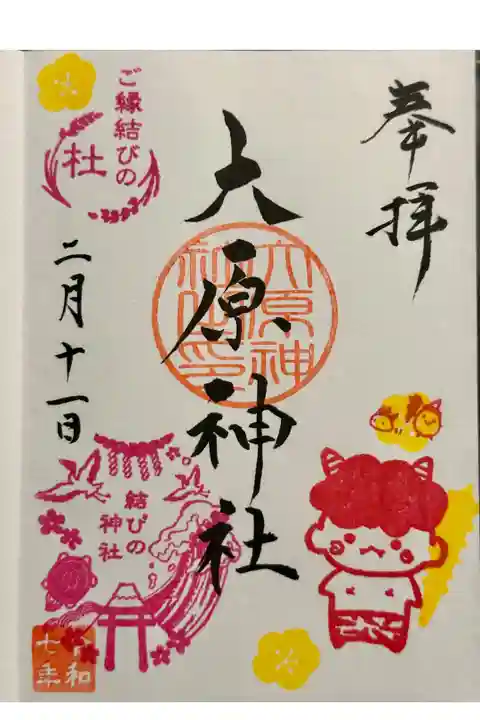 奉拝
大原神社
大原神社印
ご縁結びの
杜
二月十一日
結びの
神社
令和
七年